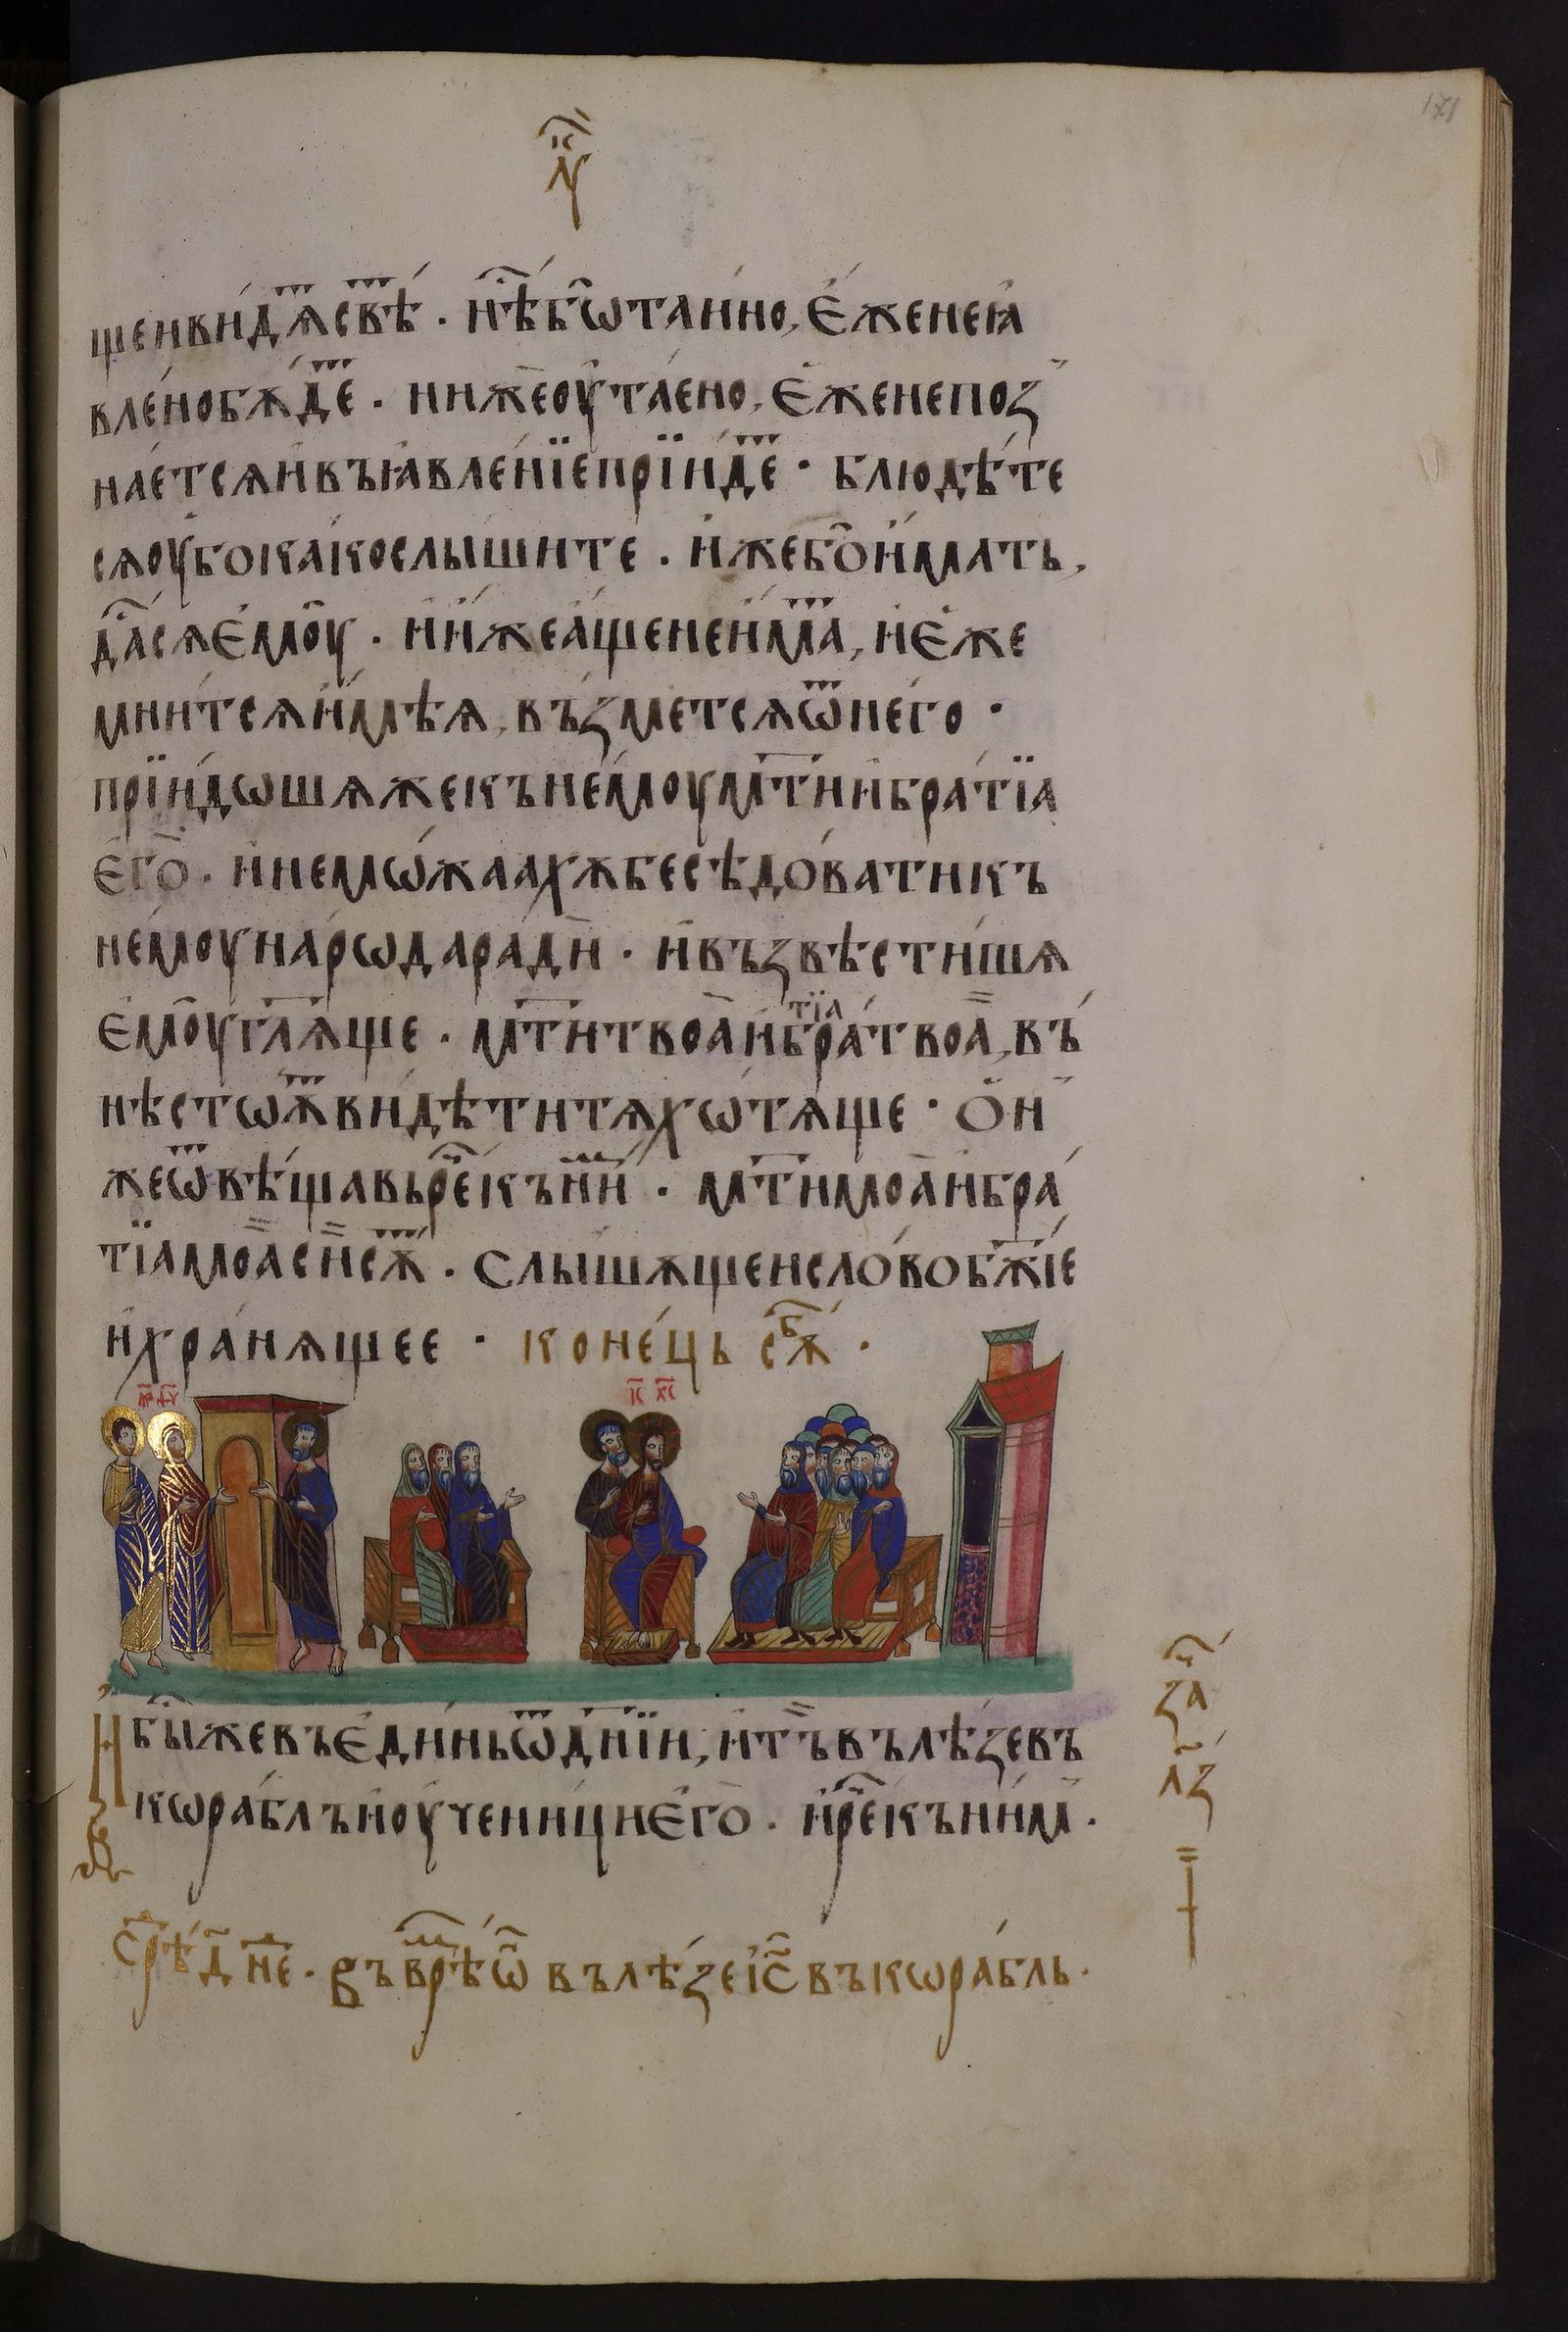 щеиви́дѧ свѣ́. нѣ́ бѡ таи́но, є́же не ꙗ
вле́но бѫ́де. ниже оутае́но, є́же не поз
нае́тсѧ и въ ꙗвле́нїе прїи́де. блюдѣ́те
сѧ оубо ка́ко слы́шите. и́же бо и́мать,
да́сѧ є́моу. и и́же а́ще не и́ма, и є́же
мни́тсѧ имѣѧ, въ́зметсѧ ѿ него.
прїи́дѡшѧ же къ нему мт҃и и бра́тїа
єго. и не мѡ́жаахѫ бесѣдо́вати къ
не́моу наро́да ра́ди. и възвѣсти́шѧ
є́моу гл҃ѧще. мт҃и твоа и бра́тїа твоа, въ
нѣ стоѧ́ ви́дѣти тѧ хѡтѧ́ще. Он
же ѿвѣ́щавь ре́ къ ни́. мт҃и моа и бра́
тїа моа си сѫ́. слы́шѧщеи сло́во бж҃їе
и хра́нѧщее. коне́ць сѫ́б.
мр҃ ѳу҃
іс҃ хс҃
И бы́ же въ єди́нь ѿ дн҃їи, и тъ вълѣ́зе въ
кѡра́бль и оученици єго. и ре́ къ ни́м.
за
лз
срѣ́д н҃е. въ врѣ́ѡ вълѣ́зе іс҃ въ кѡра́бль.